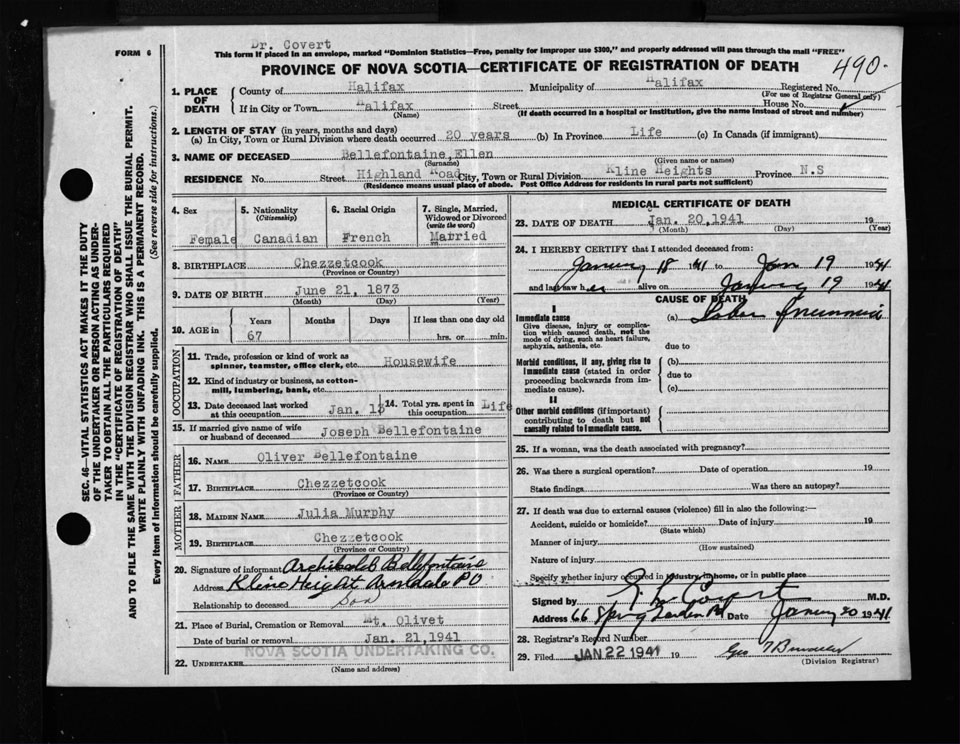 FORM 6
Dr. Covert
This form if placed in an envelope, marked "Dominion Statistics—Free, penalty for improper use $300," and properly addressed will pass through the mail "FREE"
PROVINCE OF NOVA SCOTIA—CERTIFICATE OF REGISTRATION OF DEATH
490.
1. PLACE OF DEATH
County of Halifax Municipality of Halifax Registered No.
(For use of Registrar General only)
If in City or Town Halifax Street House No.
(Name) (If death occurred in a hospital or institution, give the name instead of street and number)
2. LENGTH OF STAY (in years, months and days)
(a) In City, Town or Rural Division where death occurred 20 years (b) In Province Life (c) In Canada (if immigrant)
3. NAME OF DECEASED Bellefontaine, Ellen
(Surname) (Given name or names)
RESIDENCE No. Street Highland Road City, Town or Rural Division Kline Heights Province N.S
(Residence means usual place of abode. Post Office Address for residents in rural parts not sufficient)
4. Sex Female
5. Nationality (Citizenship) Canadian
6. Racial Origin French
7. Single, Married, Widowed or Divorced (write the word) Married
8. BIRTHPLACE Chezzetcook
(Province or Country)
9. DATE OF BIRTH June 21, 1873
(Month) (Day) (Year)
10. AGE in Years Months Days If less than one day old
67 hrs. or min.
OCCUPATION
11. Trade, profession or kind of work as spinner, teamster, office clerk, etc. Housewife
12. Kind of industry or business, as cotton-mill, lumbering, bank, etc.
13. Date deceased last worked at this occupation Jan. 13
14. Total yrs. spent in this occupation Life
15. If married give name of wife or husband of deceased Joseph Bellefontaine
FATHER
16. NAME Oliver Bellefontaine
17. BIRTHPLACE Chezzetcook
(Province or Country)
MOTHER
18. MAIDEN NAME Julia Murphy
19. BIRTHPLACE Chezzetcook
(Province or Country)
20. Signature of informant Archibald Bellefontaine
Address Kline Height Armdale PO
Relationship to deceased Son
21. Place of Burial, Cremation or Removal Mt. Olivet
Date of burial or removal Jan. 21, 1941
NOVA SCOTIA UNDERTAKING CO.
22. UNDERTAKER
(Name and address)
MEDICAL CERTIFICATE OF DEATH
23. DATE OF DEATH Jan. 20, 1941 19
(Month) (Day) (Year)
24. I HEREBY CERTIFY that I attended deceased from:
January 18 41 to Jan 19 1941
and last saw her alive on January 19 1941
CAUSE OF DEATH
I
Immediate cause (a) Lobar Pneumonia
Give disease, injury or complication which caused death, not the mode of dying, such as heart failure, asphyxia, asthenia, etc.
due to
Morbid conditions, if any, giving rise to immediate cause (stated in order proceeding backwards from immediate cause).
(b)
due to
(c)
II
Other morbid conditions (if important) contributing to death but not causally related to immediate cause.
25. If a woman, was the death associated with pregnancy?
26. Was there a surgical operation? Date of operation 19
State findings Was there an autopsy?
27. If death was due to external causes (violence) fill in also the following:—
Accident, suicide or homicide? Date of injury 19
(State which)
Manner of injury
(How sustained)
Nature of injury
Specify whether injury occurred in industry, in home, or in public place
Signed by Covert M.D.
Address 66 Spring Garden Rd Date January 20 1941
28. Registrar's Record Number
29. Filed JAN 22 1941 19 Geo
(Division Registrar)
SEC. 46—VITAL STATISTICS ACT MAKES IT THE DUTY
OF THE UNDERTAKER OR PERSON ACTING AS UNDER-
TAKER TO OBTAIN ALL THE PARTICULARS REQUIRED
IN THE "CERTIFICATE OF REGISTRATION OF DEATH"
AND TO FILE THE SAME WITH THE DIVISION REGISTRAR WHO SHALL ISSUE THE BURIAL PERMIT.
WRITE PLAINLY WITH UNFADING INK. THIS IS A PERMANENT RECORD.
Every item of information should be carefully supplied. (See reverse side for instructions.)